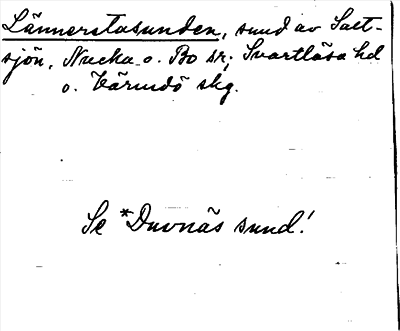 Lännerstasunden, sund av Salt-
sjön, Nacka o. Bo sr; Svartlösa hd
o. Värmdö skg.
Se *Duvnäs sund!